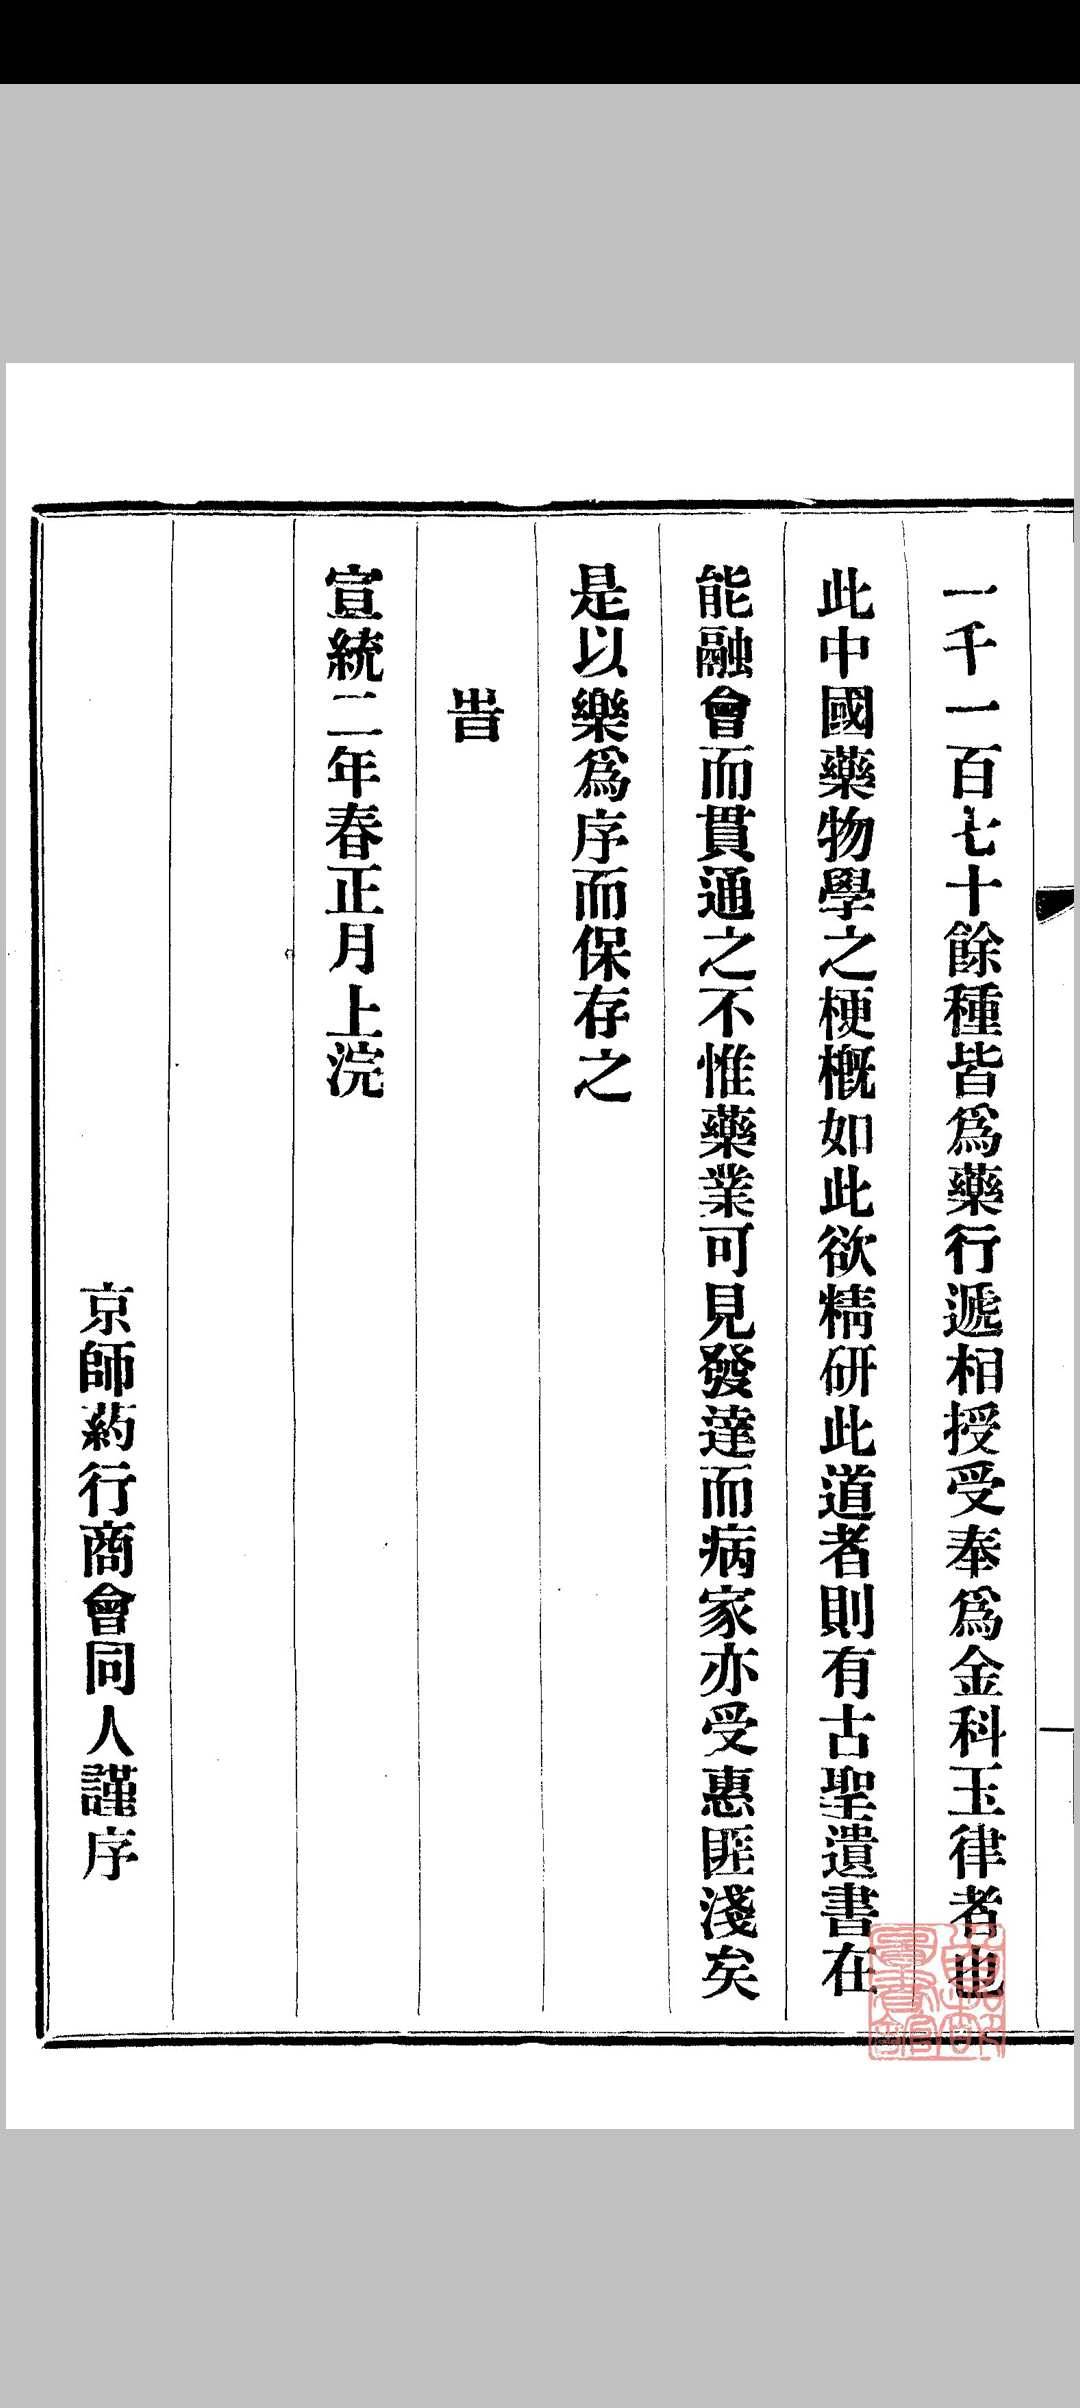 一千一百七十餘種皆爲藥行遞相授受奉爲金科玉律者也
此中國藥物學之梗槪如此欲精研此道者則有古聖遺書在
能融會而貫通之不惟藥業可見發達而病家亦受惠匪淺矣
是以樂爲序而保存之
旹
宣統二年春正月上浣
京師葯行商會同人謹序